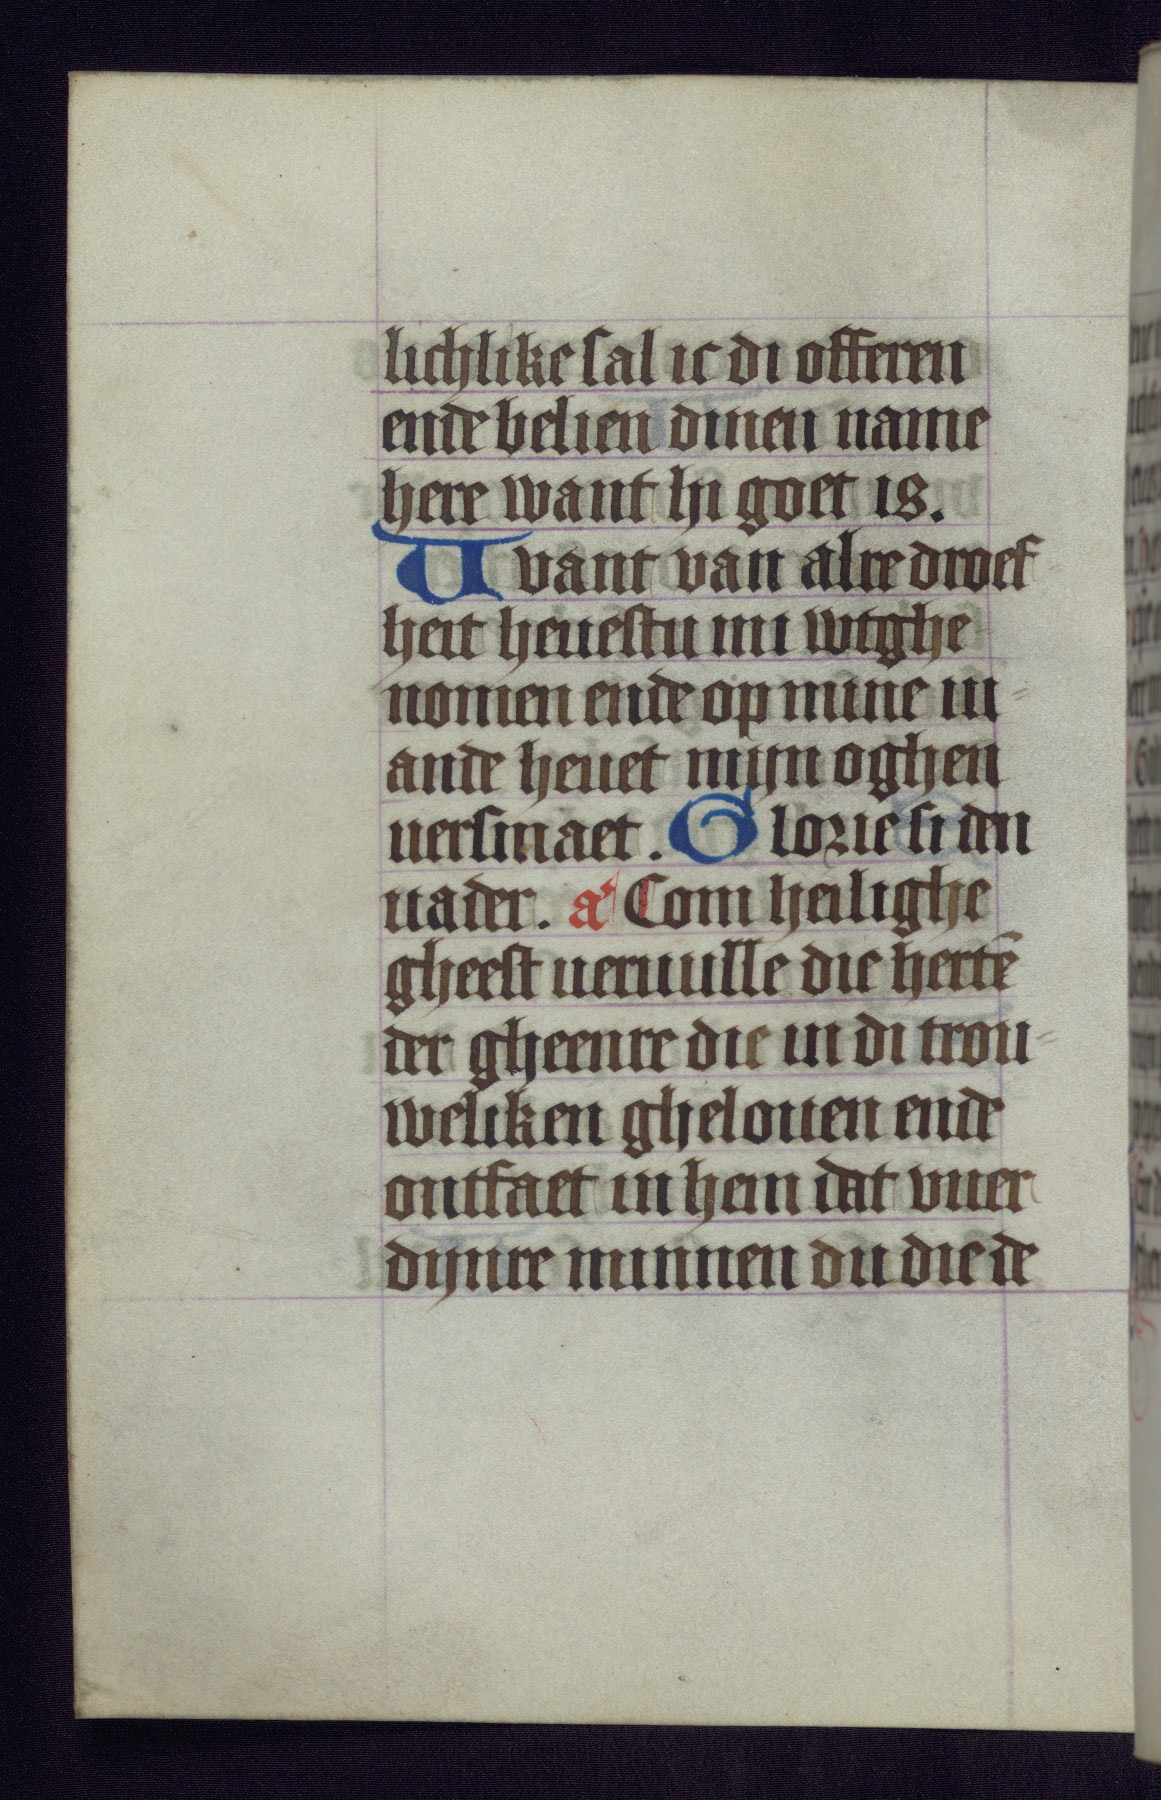 lichlike sal ic di offeren
ende belien dinen name
here want hi goet is.
Uvant van alre droef
heit heuestu mi wtghe
nomen ende op mine ui-
ande heuet mijn oghen
uersmaet. Glorie si den
uader. a Com heilighe
gheest ueruulle die hertē
der gheenre die in di trou-
weliken ghelouen ende
ontfaet in hem dat vuer
dijnre minnen du die de